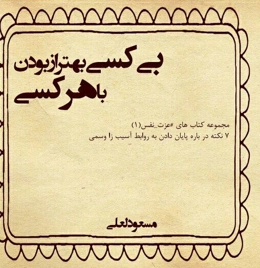 بی کسی بهتر از بودن
با هر کسی
مجموعه کتاب های #عزت_نفس(۱)
۷ نکته در باره پایان دادن به روابط آسیب زا وسمی
مسعود لعلی